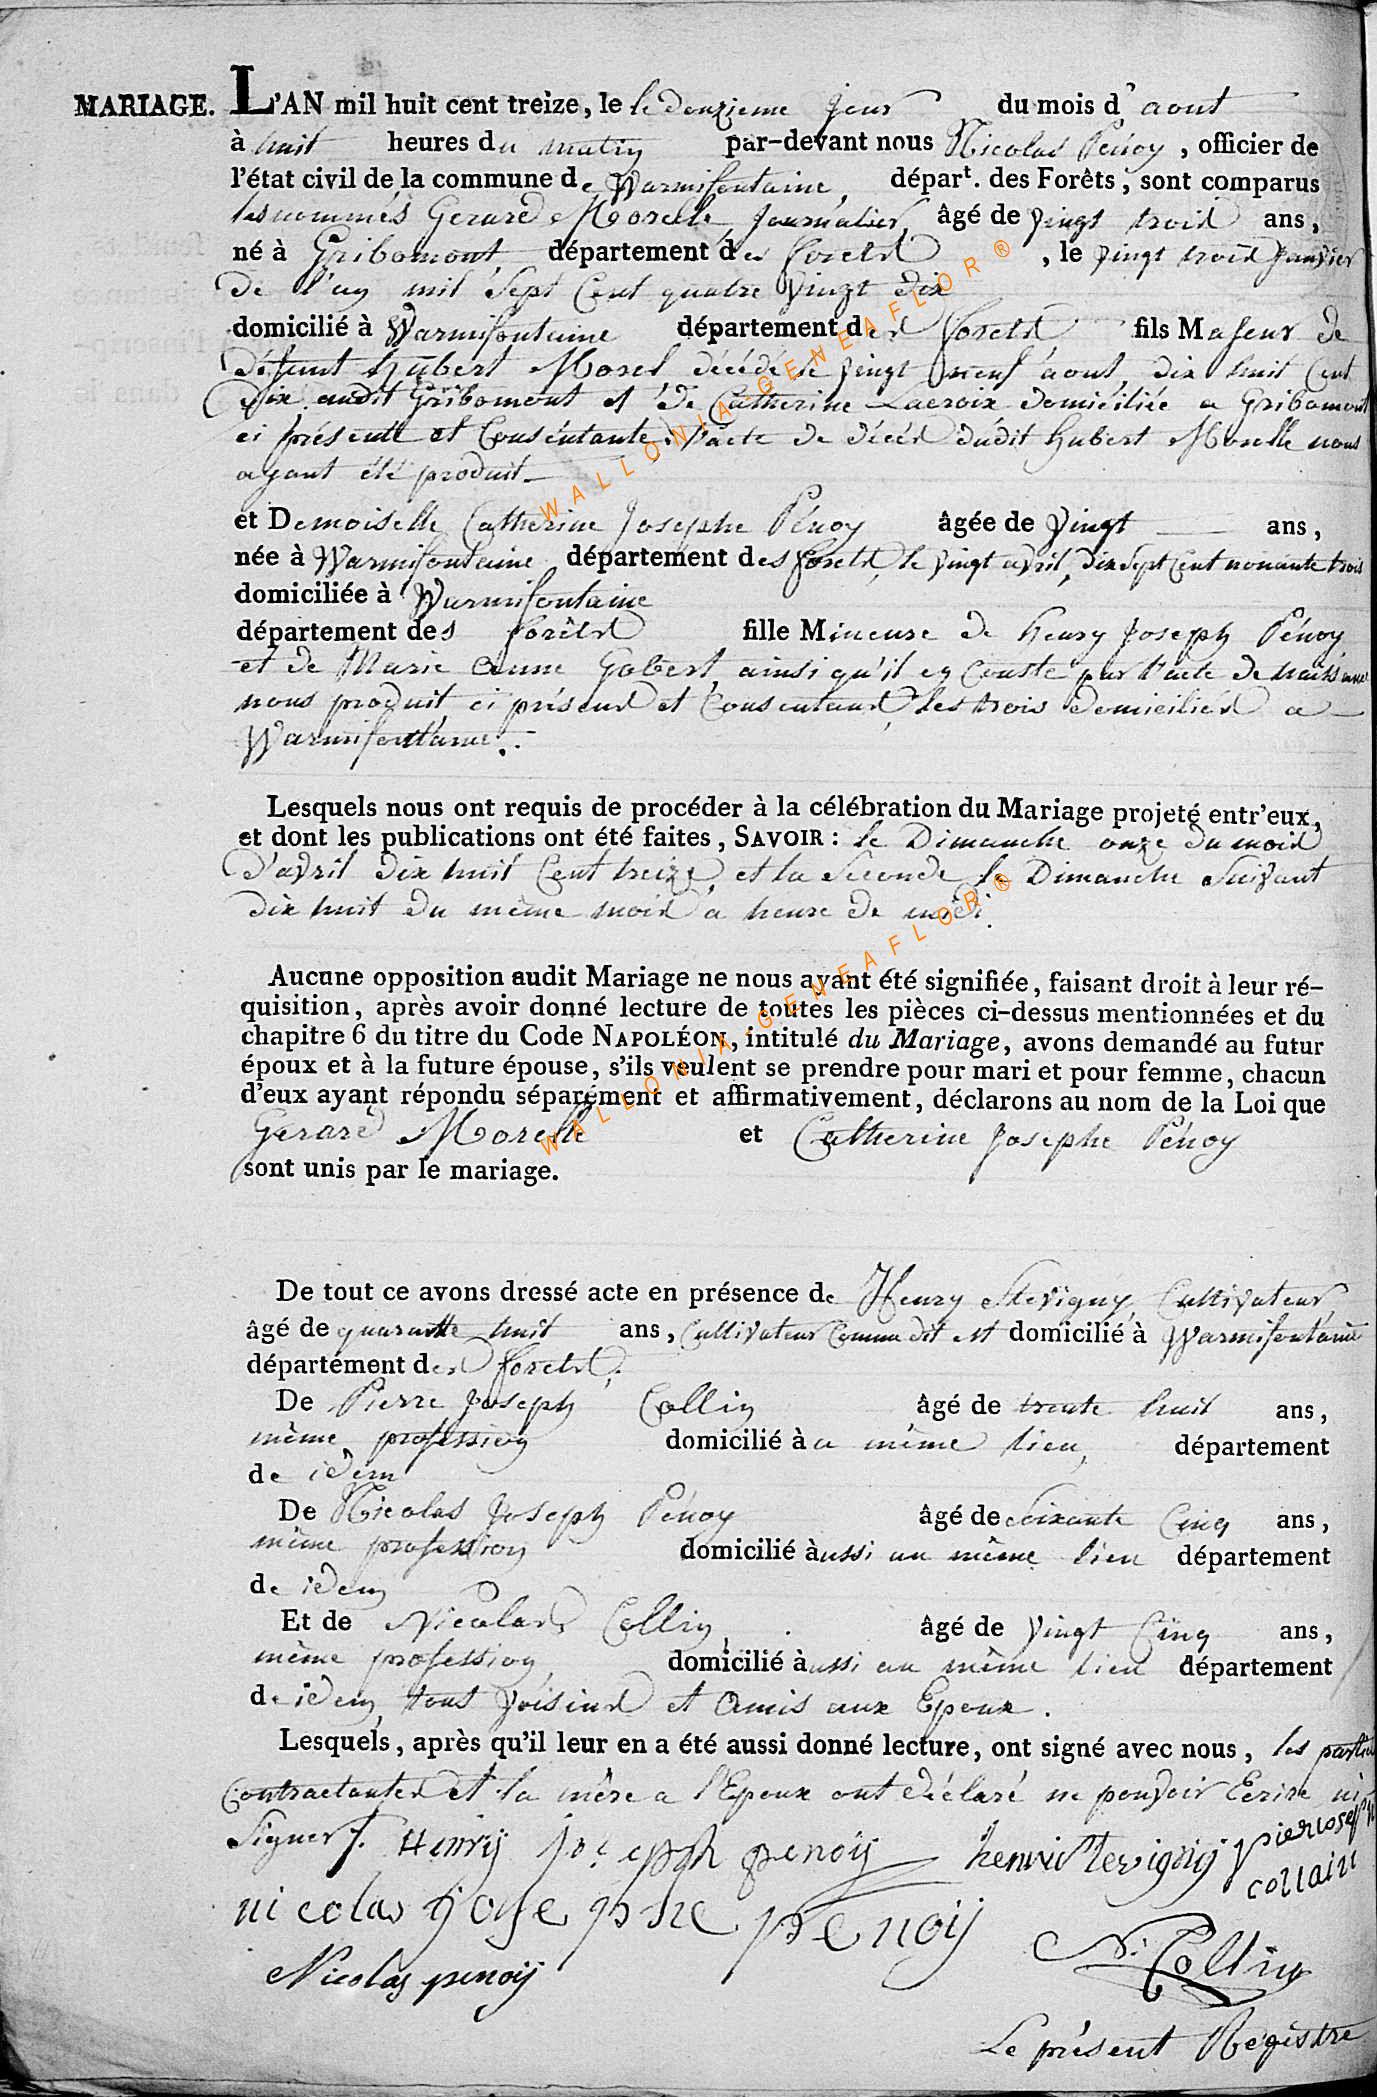 MARIAGE. L'AN mil huit cent treize, le le douzieme jour du mois d'aout
à huit heures du matin par-devant nous Nicolas Pénoy, officier de
l'état civil de la commune de Warmifontaine, départ. des Forêts, sont comparus
les nommés Gerard Morelle, Journalier, âgé de vingt trois ans,
né à Gribomont, département des forets, le vingt trois Janvier
De l'an mil Sept Cent quatre vingt dix
domicilié à Warmifontaine département des forets fils Majeur de
Défunt Hubert Morel décédé le vingt neuf aout dix huit Cent
Dix audit Gribomont et De Catherine Lacroix domiciliée a Gribomont
ci présente et Consentante, l'acte de décés dudit Hubert Morelle nous
ayant été produit
et Demoiselle Catherine Josephe Pénoy âgée de vingt ans,
née à Warmifontaine département des forets, le vingt avril, dix Sept Cent nonante trois
domiciliée à Warmifontaine
département des forêts fille Mineure de henry Joseph Pénoy
et de Marie Anne Gobert, ainsi qu'il en Conste par l'acte de naissance
nous produit ci présens et Consentans, les trois domiciliés a
Warmifontaine.
Lesquels nous ont requis de procéder à la célébration du Mariage projeté entr'eux,
et dont les publications ont été faites, SAVOIR : le Dimanche onze du mois
d'avril dix huit Cent treize, et la Seconde le Dimanche Suivant
dix huit du même mois a heure de midi.
Aucune opposition audit Mariage ne nous ayant été signifiée, faisant droit à leur ré-
quisition, après avoir donné lecture de toutes les pièces ci-dessus mentionnées et du
chapitre 6 du titre du Code NAPOLÉON, intitulé du Mariage, avons demandé au futur
époux et à la future épouse, s'ils veulent se prendre pour mari et pour femme, chacun
d'eux ayant répondu séparément et affirmativement, déclarons au nom de la Loi que
Gerard Morelle et Catherine Josephe Pénoy
sont unis par le mariage.
De tout ce avons dressé acte en présence de Henry Stevigny, Cultivateur,
âgé de quarante huit ans, Cultivateur Comme dit est domicilié à Warmifontaine
département des forets,
De Pierre Joseph Collin âgé de trente huit ans,
même profession domicilié à a même lieu, département
de idem
De Nicolas Joseph Pénoy âgé de Soixante Cinq ans,
même profession domicilié àussi au même lieu département
de idem
Et de Nicolas Collin, âgé de vingt Cinq ans,
même profession, domicilié àussi au même lieu département
de idem, tous voisins et Amis aux Epoux.
Lesquels, après qu'il leur en a été aussi donné lecture, ont signé avec nous, les parties
Contractantes et la mère a l'Epoux ont déclaré ne pouvoir Ecrire ni
Signer. Henrij Joseph penoij henri stevignij pierroseph
collain
nicolas joyse phe penoij
N. Collin
Nicolas penoij
Le présent Régistre
WALLONIA-GENEAFLOR®
WALLONIA-GENEAFLOR®